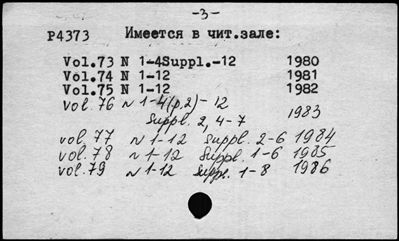 -3-
P4373 Имеется в чит.зале:
Vol.73 N 1-4Suppl.-12 1980
Vol.74 N 1-12 1981
Vol.75 N 1-12 1982
vol. 76 N 1-4(p.2)-12
Suppl. 2, 4-7 1983
vol. 77 N 1-12 Suppl. 2-6 1984
vol. 78 N 1-12 Suppl. 1-6 1985
vol. 79 N 1-12 Suppl. 1-8 1986